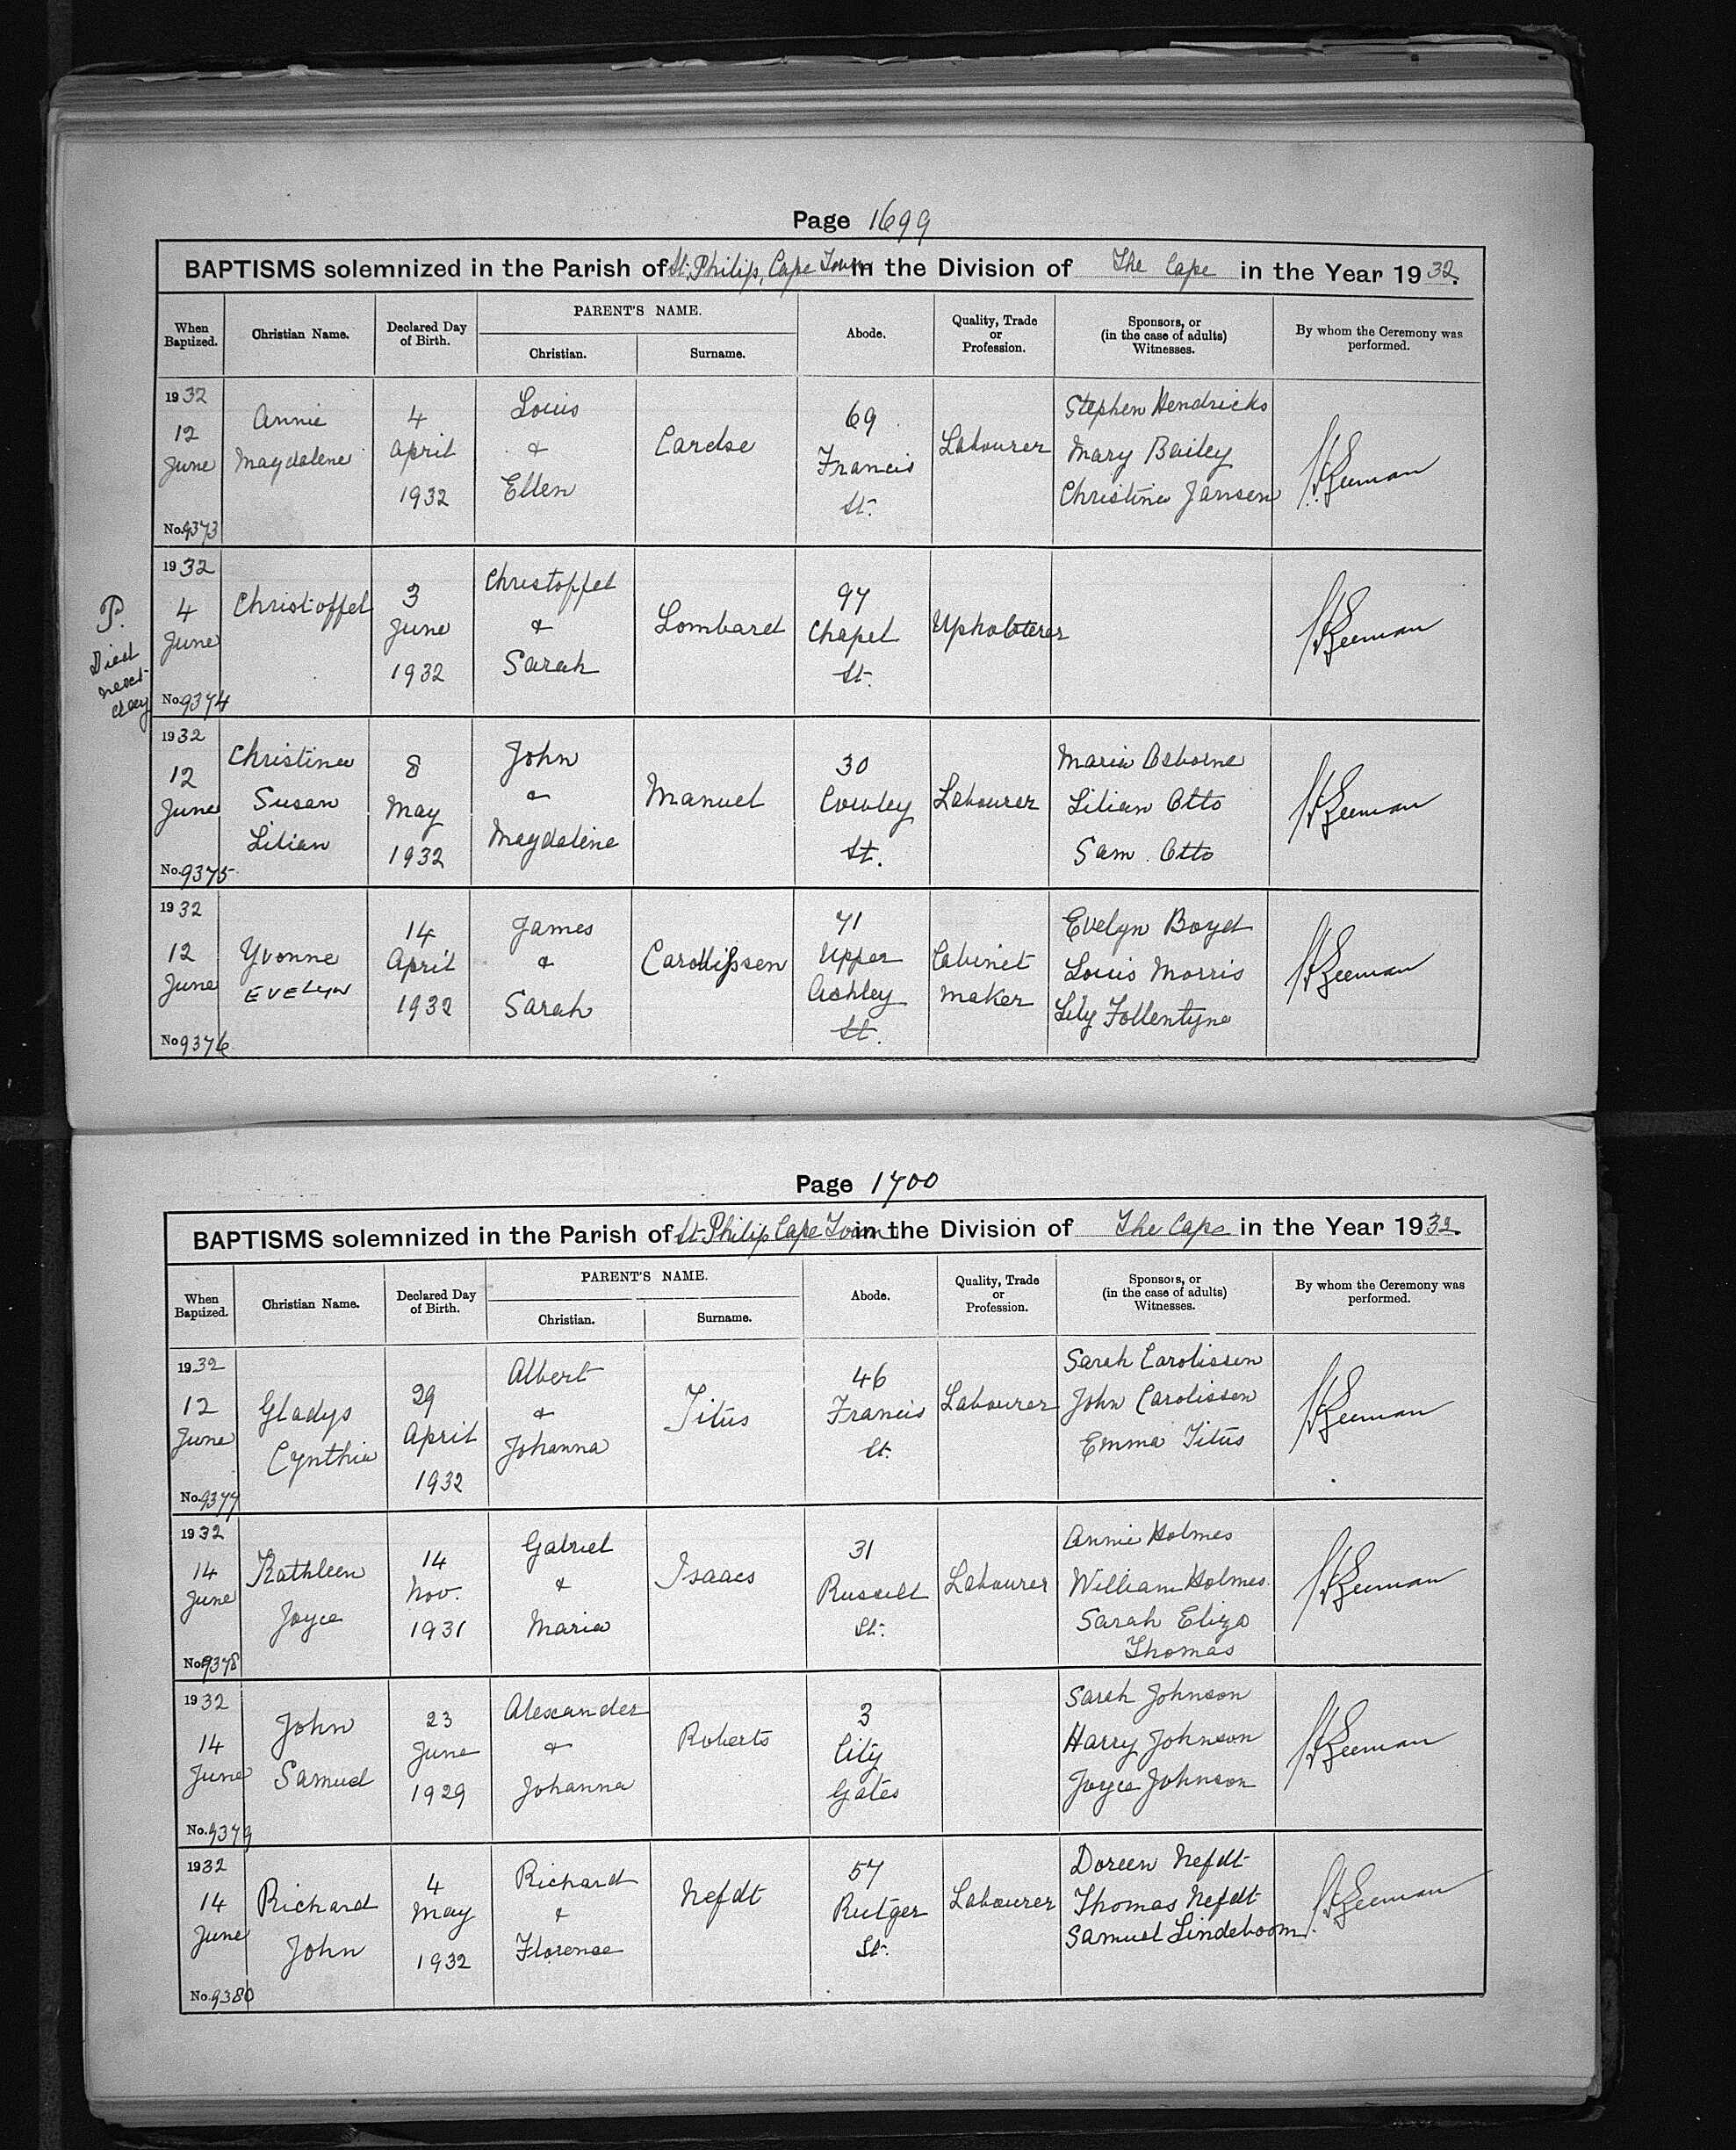 Page 1699
BAPTISMS solemnized in the Parish of St. Philip, Cape Town in the Division of The Cape in the Year 1932.
When Baptized. Christian Name. Declared Day of Birth. PARENT'S NAME. Christian. Surname. Abode. Quality, Trade or Profession. Sponsors, or (in the case of adults) Witnesses. By whom the Ceremony was performed.
1932
12 June
No. 9373
Annie Magdalene
4 April 1932
Louis & Ellen
Cardse
69 Francis St.
Labourer
Stephen Hendricks
Mary Bailey
Christina Jansen
P.
Died next day
1932
4 June
No. 9374
Christoffel
3 June 1932
Christoffel & Sarah
Lombard
97 Chapel St.
Upholsterer
1932
12 June
No. 9375
Christina Susan Lilian
8 May 1932
John & Magdalene
Manuel
30 Cowley St.
Labourer
Maria Osborne
Lilian Otto
Sam Otto
1932
12 June
No 9376
Yvonne
EVELyN
14 April 1932
James & Sarah
71 Upper Ashley St.
Cabinet maker
Evelyn Boyd
Louis Morris
Lily Follentyne
Page 1700
BAPTISMS solemnized in the Parish of St. Philip Cape Town in the Division of The Cape in the Year 1932.
When Baptized. Christian Name. Declared Day of Birth. PARENT'S NAME. Christian. Surname. Abode. Quality, Trade or Profession. Sponsors, or (in the case of adults) Witnesses. By whom the Ceremony was performed.
1932
12 June
No. 9377
Gladys Cynthia
29 April 1932
Albert & Johanna
Titus
46 Francis St.
Labourer
Sarah Carolissen
John Carolissen
Emma Titus
1932
14 June
No. 9378
Kathleen Joyce
14 Nov. 1931
Gabriel & Maria
Isaacs
31 Russell St.
Labourer
Annie Holmes
William Holmes
Sarah Eliza
Thomas
1932
14 June
No. 9379
John Samuel
23 June 1929
Alexander & Johanna
Roberts
3 City Gates
Sarah Johnson
Harry Johnson
Joyce Johnson
1932
14 June
No. 9380
Richard John
4 May 1932
Richard & Florence
Nefdt
57 Rutger St.
Labourer
Doreen Nefdt
Thomas Nefdt
Samuel Lindeboom